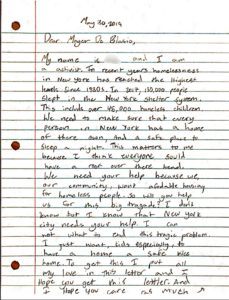 May 30, 2019
Dear Mayor De Blasio,
My name is and I am
a activist. In recent years homelessness
in New York has reached the highest
levels since 1930s. In 2017, 130,000 people
slept in the New York Shelter System.
This include over 45,000 homeless children.
We need to make sure that every
person in New York has a home
of there own. And a safe place to
sleep a night. This matters to me
because I think everyone sould
have a roof over there head.
We need your help because we,
our community, want afordable housing
for homeless people. So will you help
us for this big tragady? I don't
know but I know that New York
city needs your help. I can
not what to end this tragic problem.
I just want, kids especially, to
have a home a safe nice
home. To get this I put all
my love in this letter and I
Hope you get this letter. And
I Hope you care as much